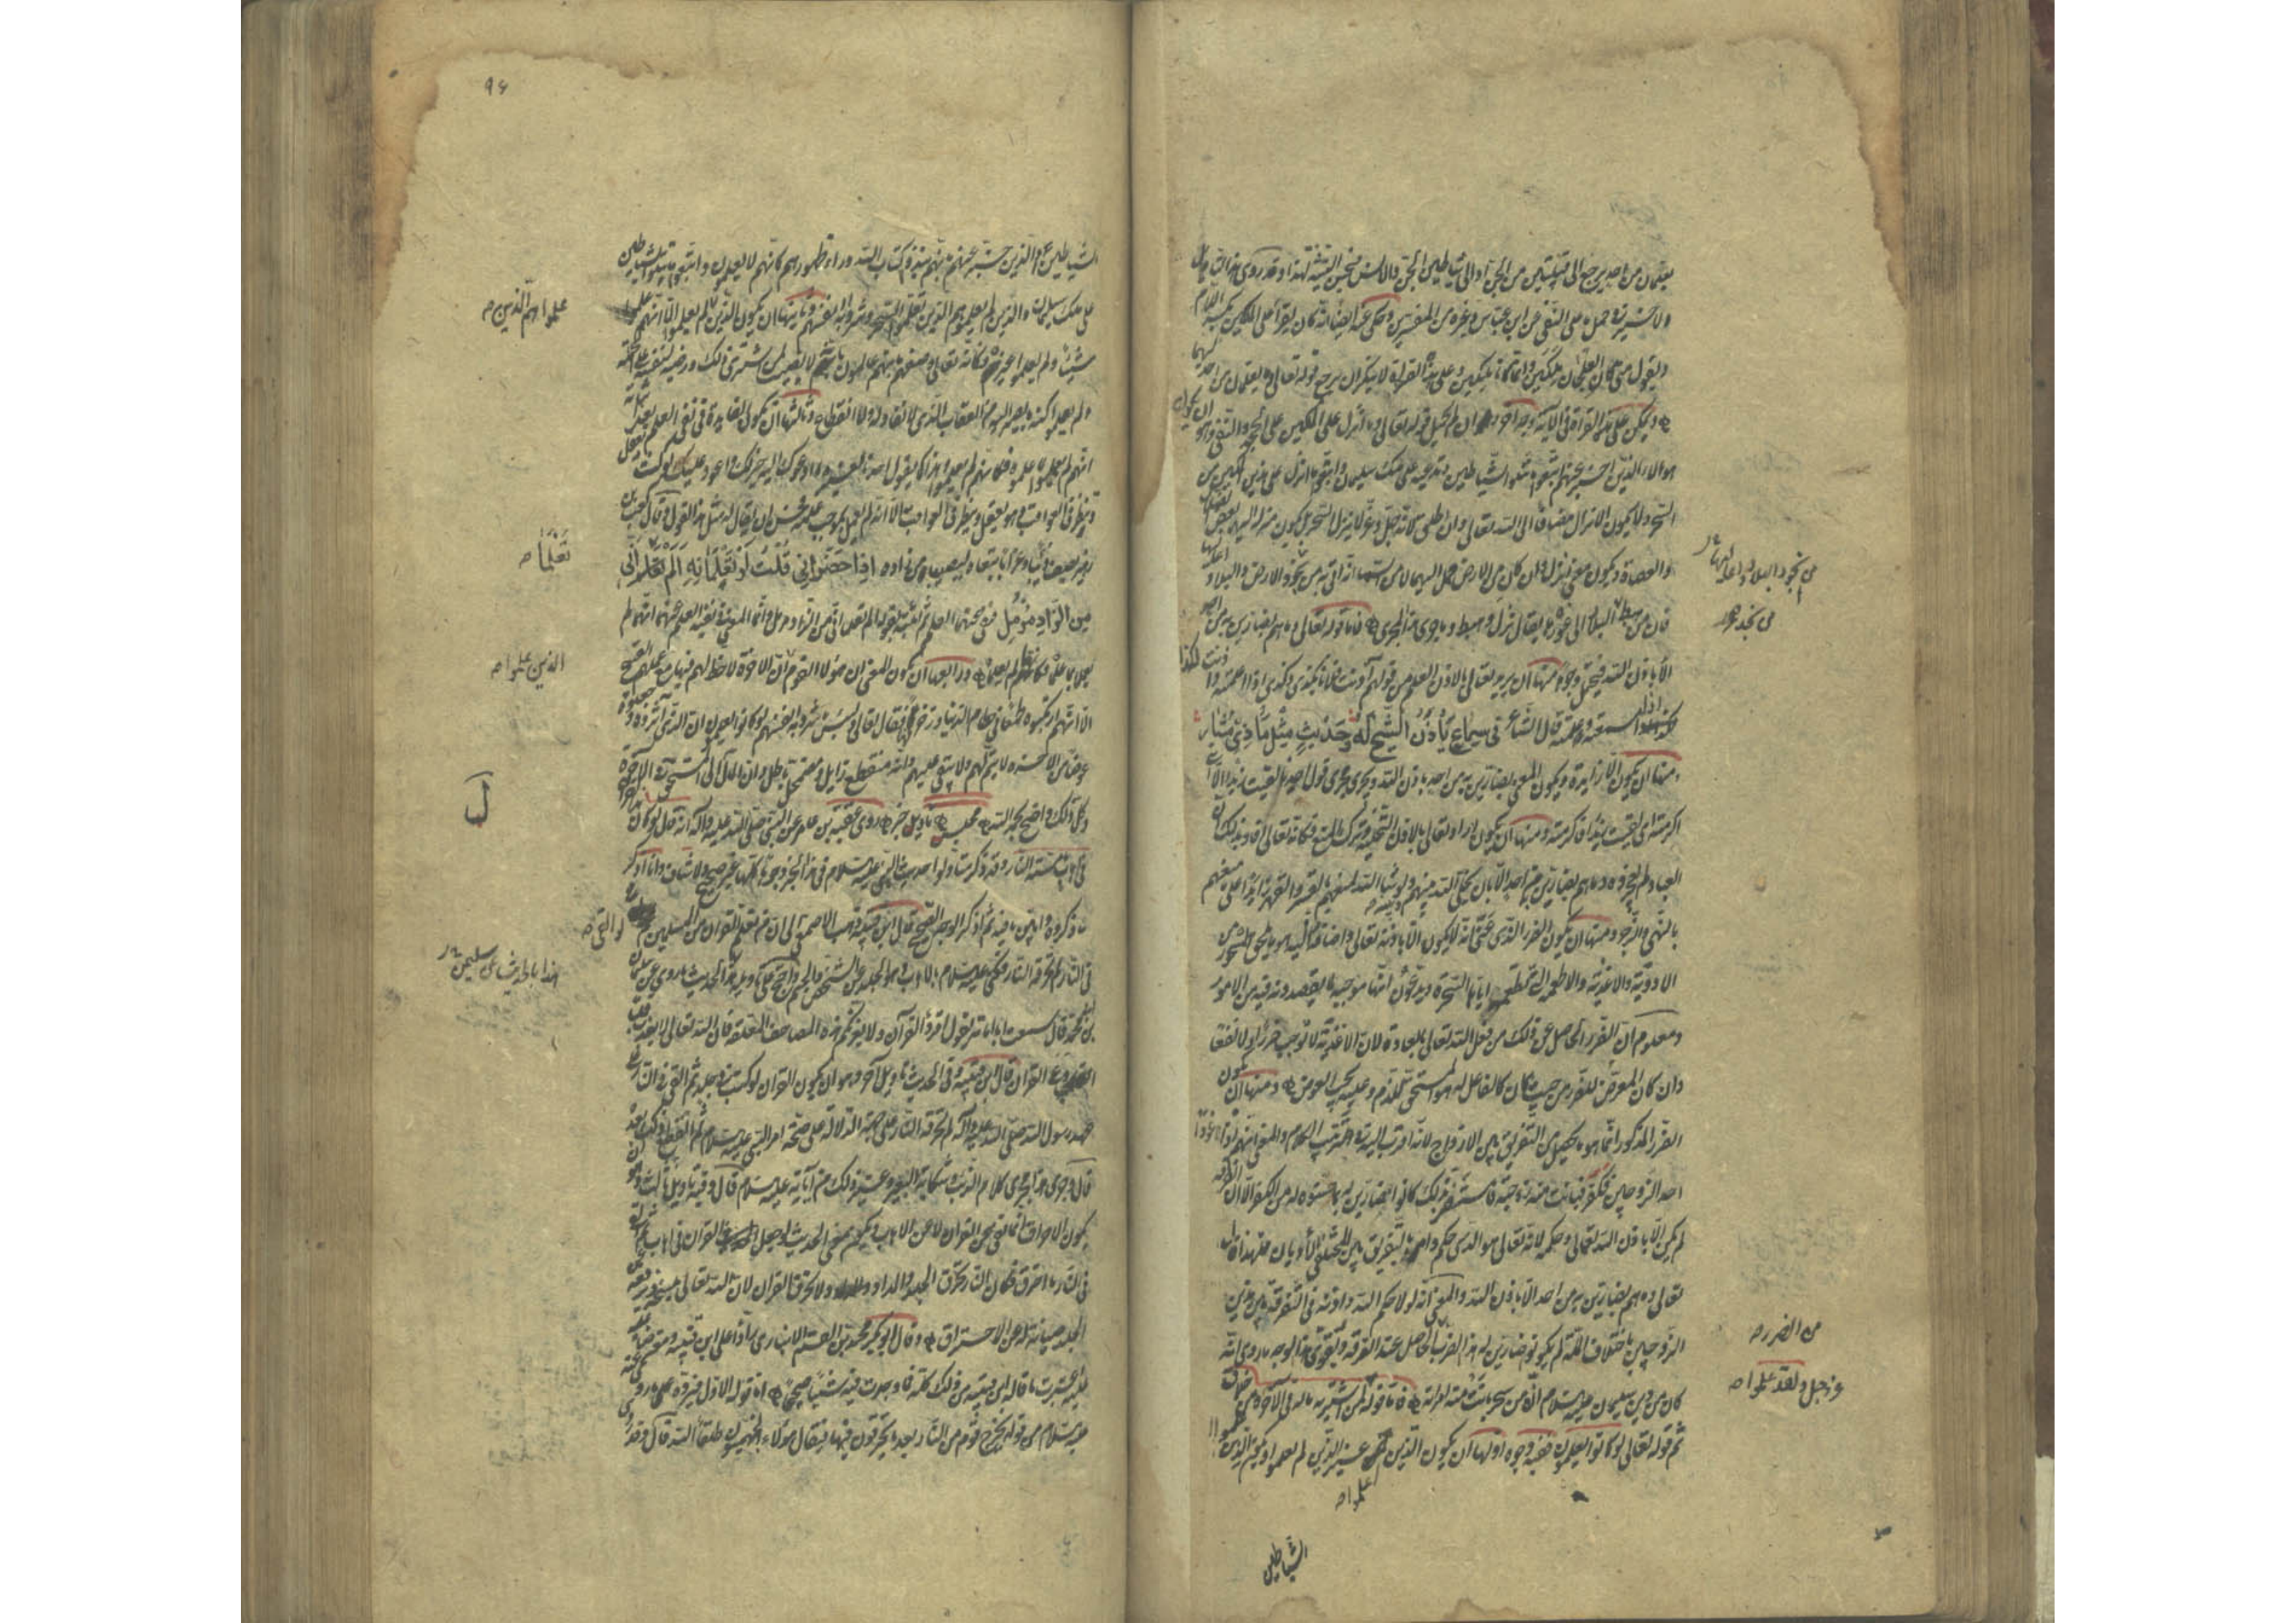 يعلمان من احد يرجع الى قبيلتين من الجن او الى شياطين الجن والانس فتحسن التثنية لهذا وقد روى هذا التأويل
فى حمل ما على النفى عن ابن عباس وغيره من المفسرين وحكى عنه ايضا انه كان يقرأ على الملكين بكسر اللام
ويقول متى كان العلجان ملكين وانما كانا ملكين وعلى هذه القراءة لا ينكر ان يرجع قوله تعالى وما يعلمان من احد اليهما
ويمكن على هذه القراءة فى الآية وجه آخر وان لم يحمل قوله تعالى وما انزل على الملكين على الجحد والنفى وهو ان يكون
هؤلاء الذين اخبر عنهم اتبعوا ما تتلوا الشياطين وتدعيه على ملك سليمان واتبعوا ما انزل على هذين الملكين من
السحر ولا يكون الانزال مضافا الى الله تعالى وان اطلق لانه جل وعز لا ينزل السحر بل يكون منزله اليهما بعض الضلال
والعصاة ويكون معنى انزل وان كان من الارض حمل اليهما لا من السماء انه اتى به من نجود الارض والبلاد اعاليها
فان من هبط من نجد البلاد الى غورها يقال نزل وهبط وما جرى هذا المجرى فاما قوله تعالى وما هم بضارين به من احد
الا باذن الله فيحتمل وجوها منها ان يريد تعالى بالاذن العلم من قولهم آذنت فلانا بكذا وكذا اذا اعلمته واذنت لكذا
وكذا اذا استمعته وعلمته قال الشاعر فى سماع يأذن الشيخ له وحديث مثل ماذى مشار
ومنها ان يكون الا زايدة ويكون المعنى وما هم بضارين به من احد باذن الله ويجرى مجرى قول احدنا لقيت زيدا الا انى
اكرمته اى لقيت زيدا فاكرمته ومنها ان يكون اراد تعالى بالاذن التخلية وترك المنع فكانه تعالى افاد بذلك ان
العباد لم يعجزوه وما هم بضارين من احد الا بان يخلى الله بينهم وبينه ولو شاء الله لمنعهم بالقهر والقسر زايدا على منعهم
بالنهى والزجر ومنها ان يكون الضرر الذى عنى انه لا يكون الا باذنه تعالى واضافه اليه هو ما يلحق المسحور من
الادوية والاغذية والاطعمة التى يطعمه اياها السحرة ويدعون انها موجبة لما يقصدونه فيه من الامور
ومعلوم ان الضرر الحاصل عن ذلك من فعل الله تعالى بالعادة لان الاغذية لا توجب ضررا ولا نفعا
وان كان المعرض للضرر من حيث كان كالفاعل له هو المستحق للذم وعليه يجب العوض ومنها ان يكون
الضرر المذكور انما هو ما يحصل من التفريق بين الازواج لانه اقرب اليه فى ترتيب الكلام والمعنى انهم اذا اغووا
احد الزوجين فكفر فبانت منه زوجته فاستضر بذلك كانوا ضارين له بما حسنوه له من الكفر الا ان الفرقة
لم تكن الا باذن الله تعالى وحكمه لانه تعالى هو الذى حكم وامر بالتفريق بين المختلفى الاديان فلهذا قال
تعالى وما هم بضارين به من احد الا باذن الله والمعنى انه لولا حكم الله واذنه فى التفرقة بين هذين
الزوجين باختلاف الملة لم يكونوا ضارين له هذا الضرب الحاصل عند الفرقة ويقوى هذا الوجه ما روى انه
كان من دين سليمان عليه السلام انه من سحر بانت منه امرأته فاما قوله لمن اشتريه ما له فى الآخرة من خلاق
ثم قوله تعالى لو كانوا يعلمون ففيه وجوه اولها ان يكون الذين علموا غير الذين لم يعلموا ويكون الذين
علموا
الشياطين
من الضرر
عز وجل ولقد علموا
٩٤
الشياطين او الذين خبر عنهم بانهم نبذوا كتاب الله وراء ظهورهم كانهم لا يعلمون واتبعوا ما تتلوا الشياطين
على ملك سليمان والذين لم يعلموا هم الذين تعلموا السحر وشروا به انفسهم وثانيها ان يكون الذين لم يعلموا الا انهم علموا
شيئا ولم يعلموا غيره فكانه تعالى وصفهم بانهم عالمون بانه لا نصيب لمن اشترى ذلك ورضيه لنفسه على الجملة
ولم يعلموا كنه ما يصير اليه من العقاب الذى لا نفاد له ولا انقطاع وثالثها ان تكون الفايدة فى نفى العلم بعد اثباته
انهم لم يعملوا بما علموه فكانهم لم يعلموا وهذا كما يقول احدنا لغيره ما ادعوك اليه خير لك واعود عليك لو كنت تعقل
وتنظر فى العواقب وهو يعقل وينظر فى العواقب الا انه لم يعمل بموجب علمه فحسن ان يقال له مثل هذا القول وقال كعب بن
زهير يصف ذئبا وغرابا تبعاه ليصيبا من زاده اذا حضرانى قلت لو تعلمانه الم تعلما انى
من الزاد مرمل فنفى عنهما العلم ثم اثبته بقوله الم تعلما انى من الزاد مرمل وانما المعنى فى نفيه العلم عنهما انهما لم
يعملا بما علما فكانهما لم يعلما ورابعها ان يكون المعنى ان هؤلاء القوم الذين علموا ان الآخرة لا حظ لهم فيها مع عملهم القبيح
الا انهم ارتكبوه طمعا فى حطام الدنيا وزخرفها فقال تعالى ولبئس ما شروا به انفسهم لو كانوا يعلمون ان الذى آثروه وجعلوه
عوضا من الآخرة لا يتم لهم ولا يبقى عليهم وانه منقطع زايل ومضمحل باطل وان المآل الى المستحق فى الآخرة
وكل ذلك واضح بحمد الله مجلس تاويل خبر روى عقبة بن عامر عن النبى صلى الله عليه وآله انه قال لو كان القرآن
فى اهاب ما مسته النار وقد ذكر متأولوا حديث النبى عليه السلام فى هذا الخبر وجوها كلها غير صحيح ولا شاف وانا اذكر
ما ذكروه وابين ما فيه ثم اذكر الوجه الصحيح قال ابن قتيبة ذهب الاصمعى الى ان من تعلم القرآن من المسلمين لو القى
فى النار لم تحرقه النار فكنى عليه السلام بالاهاب وهو الجلد عن الشخص والجسم واحتج على تاويله هذا الحديث بما روى عن سليمان
بن محمد قال سمعت ابا امامة يقول اقرؤا القرآن ولا يغرنكم هذه المصاحف المعلقة فان الله تعالى لا يعذب قلبا
وعا القرآن قال ابن قتيبة وفى الحديث تاويل آخر وهو ان يكون القرآن لو كتب فى جلد ثم القى فى النار على
عهد رسول الله صلى الله عليه وآله لم تحرقه النار على جهة الدلالة على صحة امر النبى عليه السلام ثم انقطع ذلك بعده
قال وجرى هذا مجرى كلام الذئب وشكاية البعير وغير ذلك من آياته عليه السلام قال وفيه تاويل ثالث وهو ان
يكون الاحراق انما نفى عن القرآن لا عن الاهاب ويكون معنى الحديث لو جعل القرآن فى اهاب ثم القى
فى النار ما احترق فكان النار تحرق الجلد والمداد ولا تحرق القرآن لان الله تعالى ينسخه ويرفعه من
الجلد صيانة له عن الاحتراق وقال ابو بكر محمد بن القسم الانبارى رادا على ابن قتيبة ومتعرضا
عليه اعتبرت ما قاله ابن قتيبة من ذلك كله فما وجدت فيه شيئا صحيحا اما قوله الاول فيرده ما روى عنه
عليه السلام من قوله يخرج قوم من النار بعد ما يحترقون فيها فيقال هؤلاء الجهنميون طلقاء الله قال وقد روى
علموا هم الذين
تعلما
الذين علموا
لو القى